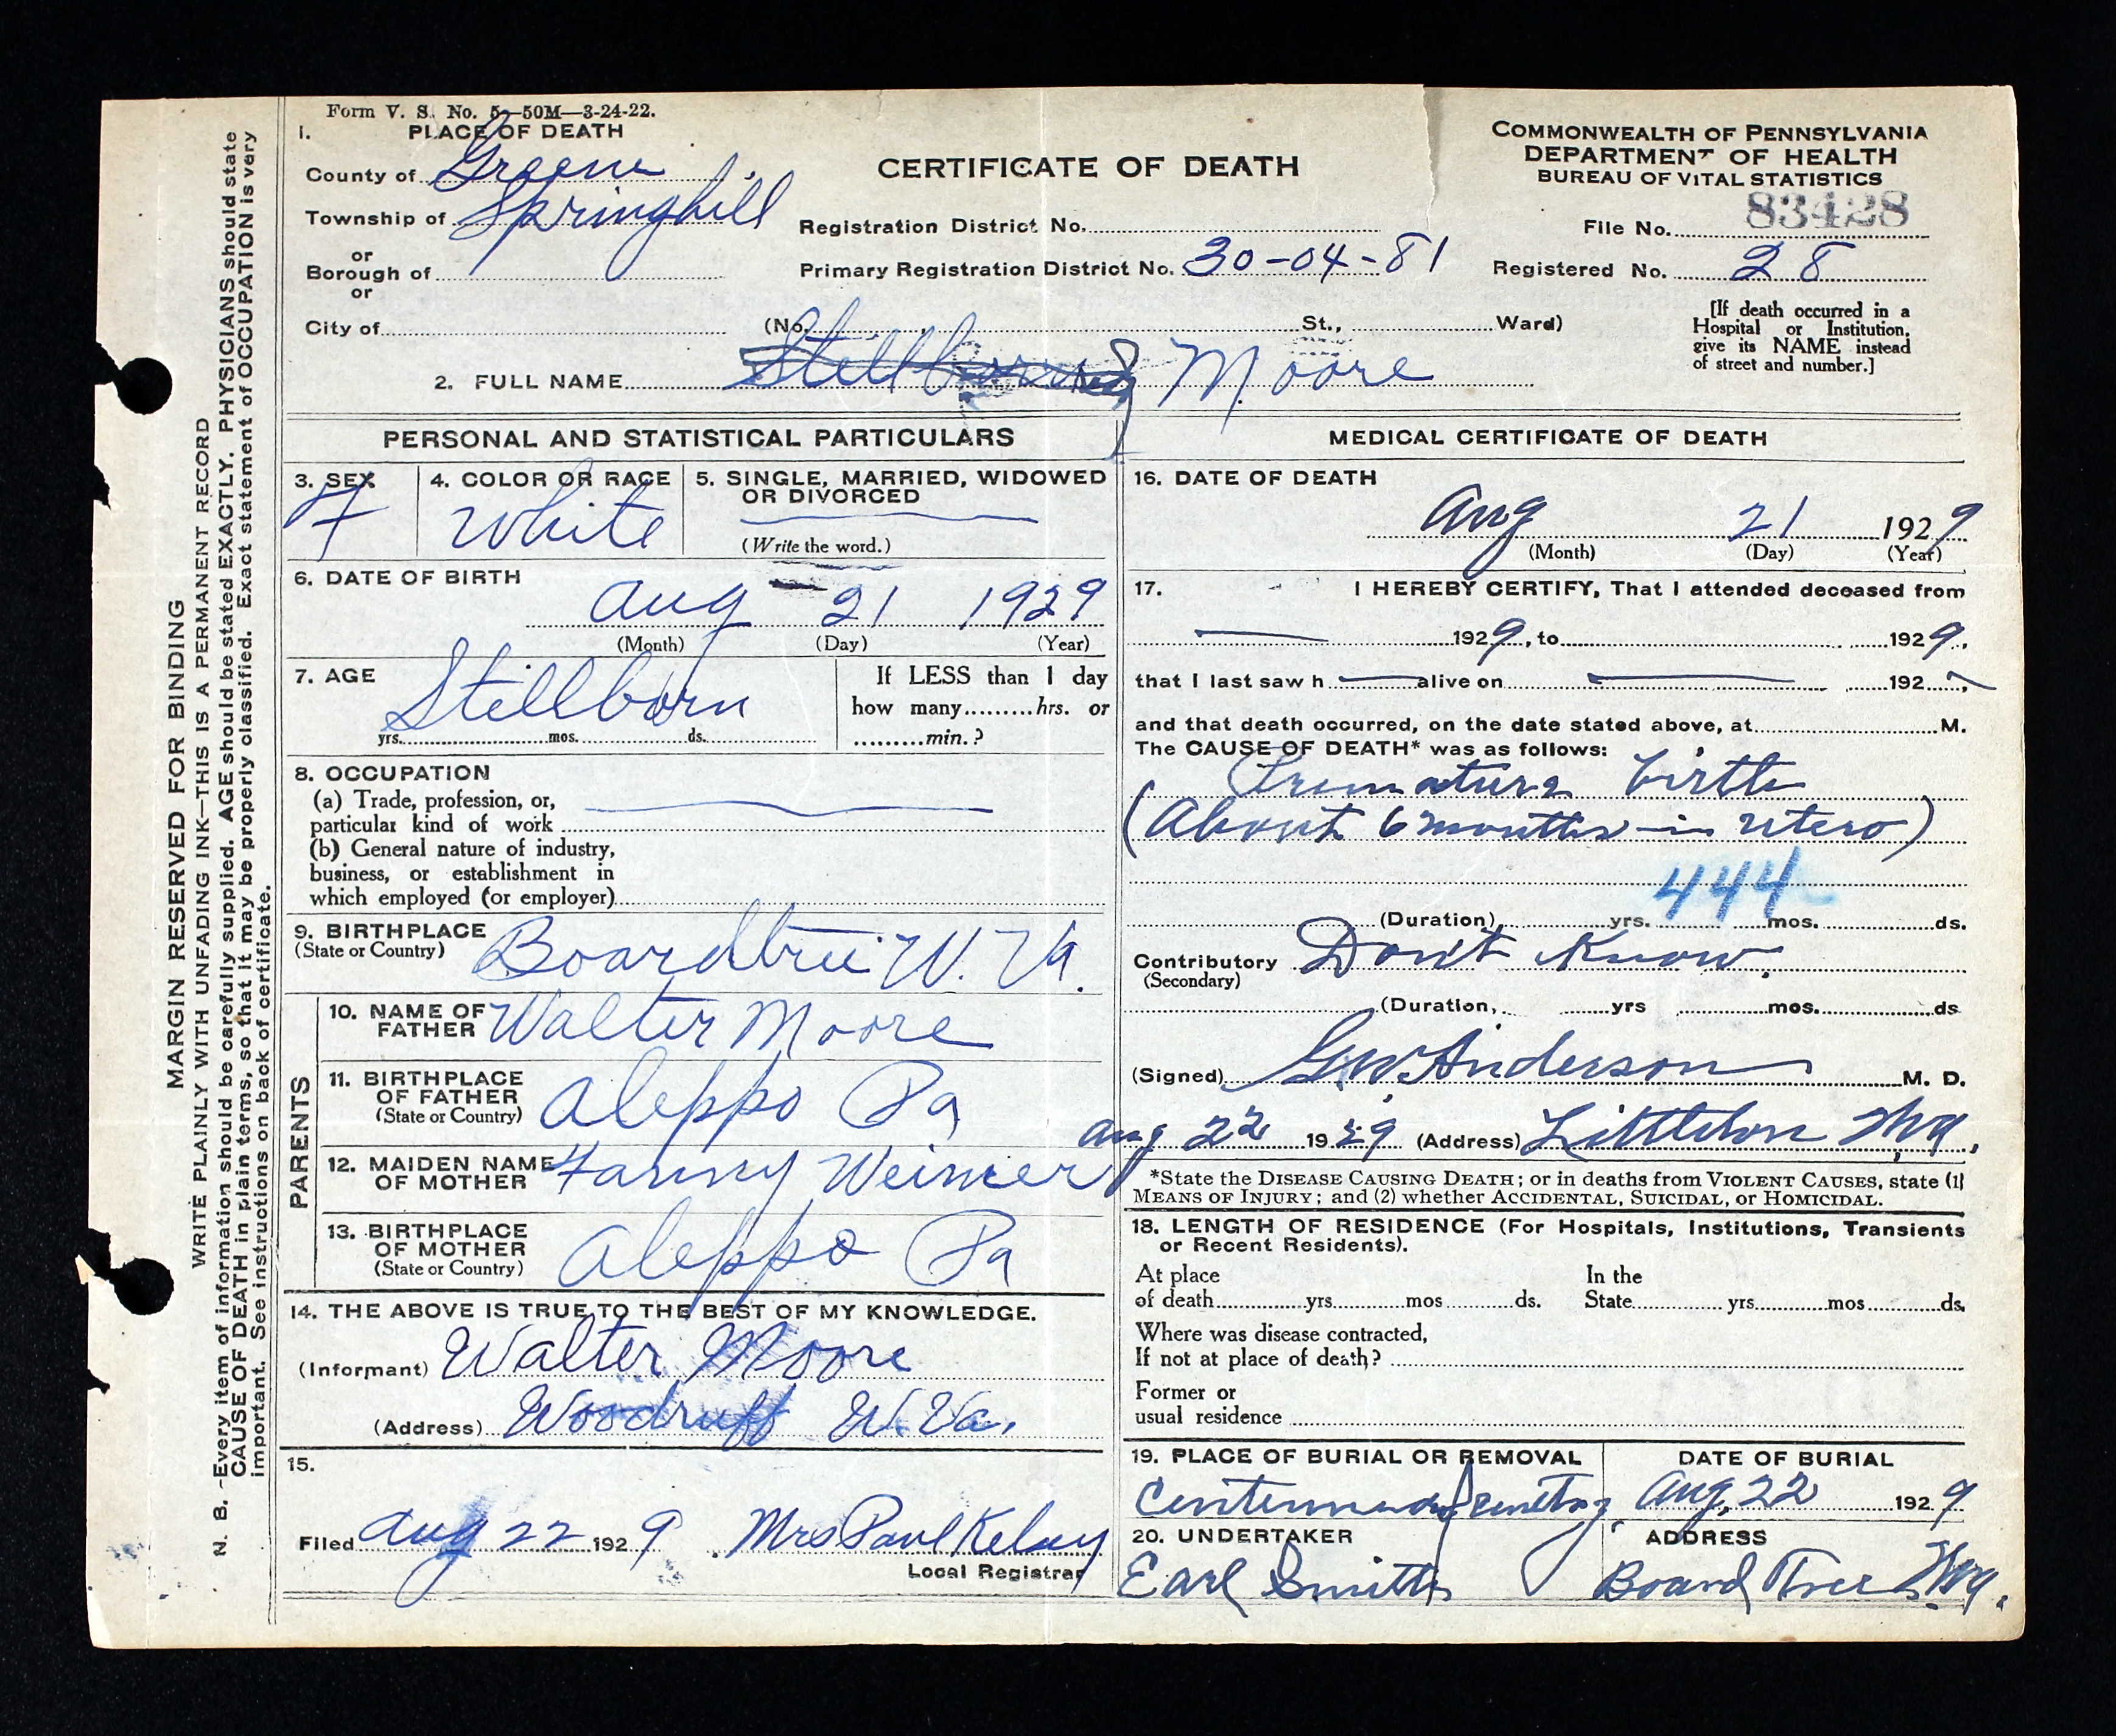 Form V. S. No. 5—50M—3-24-22.
1. PLACE OF DEATH
County of Greene
Township of Springhill
or
Borough of
or
City of
CERTIFICATE OF DEATH
Registration District No.
Primary Registration District No. 30-04-81
(No. St., Ward)
COMMONWEALTH OF PENNSYLVANIA
DEPARTMENT OF HEALTH
BUREAU OF VITAL STATISTICS
File No. 83428
Registered No. 28
[If death occurred in a
Hospital or Institution,
give its NAME instead
of street and number.]
2. FULL NAME Moore
PERSONAL AND STATISTICAL PARTICULARS
3. SEX
F
4. COLOR OR RACE
White
5. SINGLE, MARRIED, WIDOWED
OR DIVORCED
(Write the word.)
6. DATE OF BIRTH
Aug 21 1929
(Month) (Day) (Year)
7. AGE
Stellborn
yrs. mos. ds.
If LESS than 1 day
how many hrs. or
min.?
8. OCCUPATION
(a) Trade, profession, or,
particular kind of work
(b) General nature of industry,
business, or establishment in
which employed (or employer)
9. BIRTHPLACE
(State or Country)
Boardtree W. Va.
PARENTS
10. NAME OF
FATHER Walter Moore
11. BIRTHPLACE
OF FATHER
(State or Country)
Aleppo Pa
12. MAIDEN NAME
OF MOTHER Fanny Weimer
13. BIRTHPLACE
OF MOTHER
(State or Country)
Aleppo Pa
14. THE ABOVE IS TRUE TO THE BEST OF MY KNOWLEDGE.
(Informant) Walter Moore
(Address) Woodruff W. Va.
15.
Filed Aug 22 1929 Mrs Paul Kelsey
Local Registrar
MEDICAL CERTIFICATE OF DEATH
16. DATE OF DEATH
Aug 21 1929
(Month) (Day) (Year)
17. I HEREBY CERTIFY, That I attended deceased from
1929, to 1929,
that I last saw h alive on 192 ,
and that death occurred, on the date stated above, at M.
The CAUSE OF DEATH* was as follows:
Premature birth
(About 6 months in utero)
444
(Duration) yrs. mos. ds.
Contributory Don't Know.
(Secondary)
(Duration, yrs mos. ds
(Signed) G W Anderson M. D.
Aug 22 1929 (Address) Littleton W Va.
*State the DISEASE CAUSING DEATH; or in deaths from VIOLENT CAUSES, state (1)
MEANS OF INJURY; and (2) whether ACCIDENTAL, SUICIDAL, or HOMICIDAL.
18. LENGTH OF RESIDENCE (For Hospitals, Institutions, Transients
or Recent Residents).
At place
of death yrs mos ds.
In the
State yrs mos ds.
Where was disease contracted,
If not at place of death?
Former or
usual residence
19. PLACE OF BURIAL OR REMOVAL
Cemetery
DATE OF BURIAL
Aug, 22 1929
20. UNDERTAKER
Earl Smith
ADDRESS
Board Tree W. Va.
MARGIN RESERVED FOR BINDING
WRITE PLAINLY WITH UNFADING INK—THIS IS A PERMANENT RECORD
N. B. -Every item of information should be carefully supplied. AGE should be stated EXACTLY. PHYSICIANS should state
CAUSE OF DEATH in plain terms, so that it may be properly classified. Exact statement of OCCUPATION is very
important. See instructions on back of certificate.